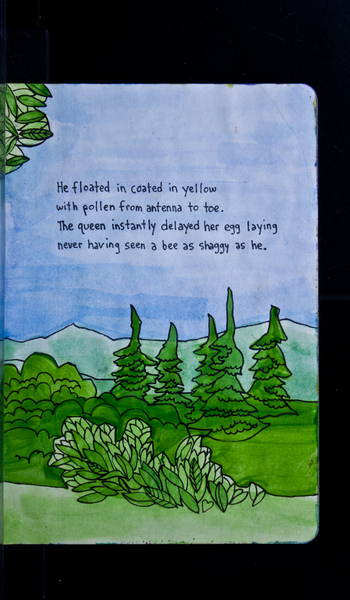 He floated in coated in yellow
with pollen from antenna to toe.
The queen instantly delayed her egg laying
never having seen a bee as shaggy as he.